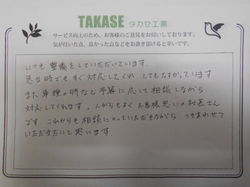 TAKASE タカセ工業
サービス向上のため、お客様のご意見をお伺いしております。
気が付いた点、良かった点などをお書き頂けると幸いです。
いつも整備をしていただいています。
急な時でもすぐ対応してくれ とてもたすかっています
また車検の時など予算に応じて相談しながら
対応してくれます。いつがらもよくお客様思いのお店さん
です これからも相談にのっていただきながら つきあわせて
いただきたいと思います。